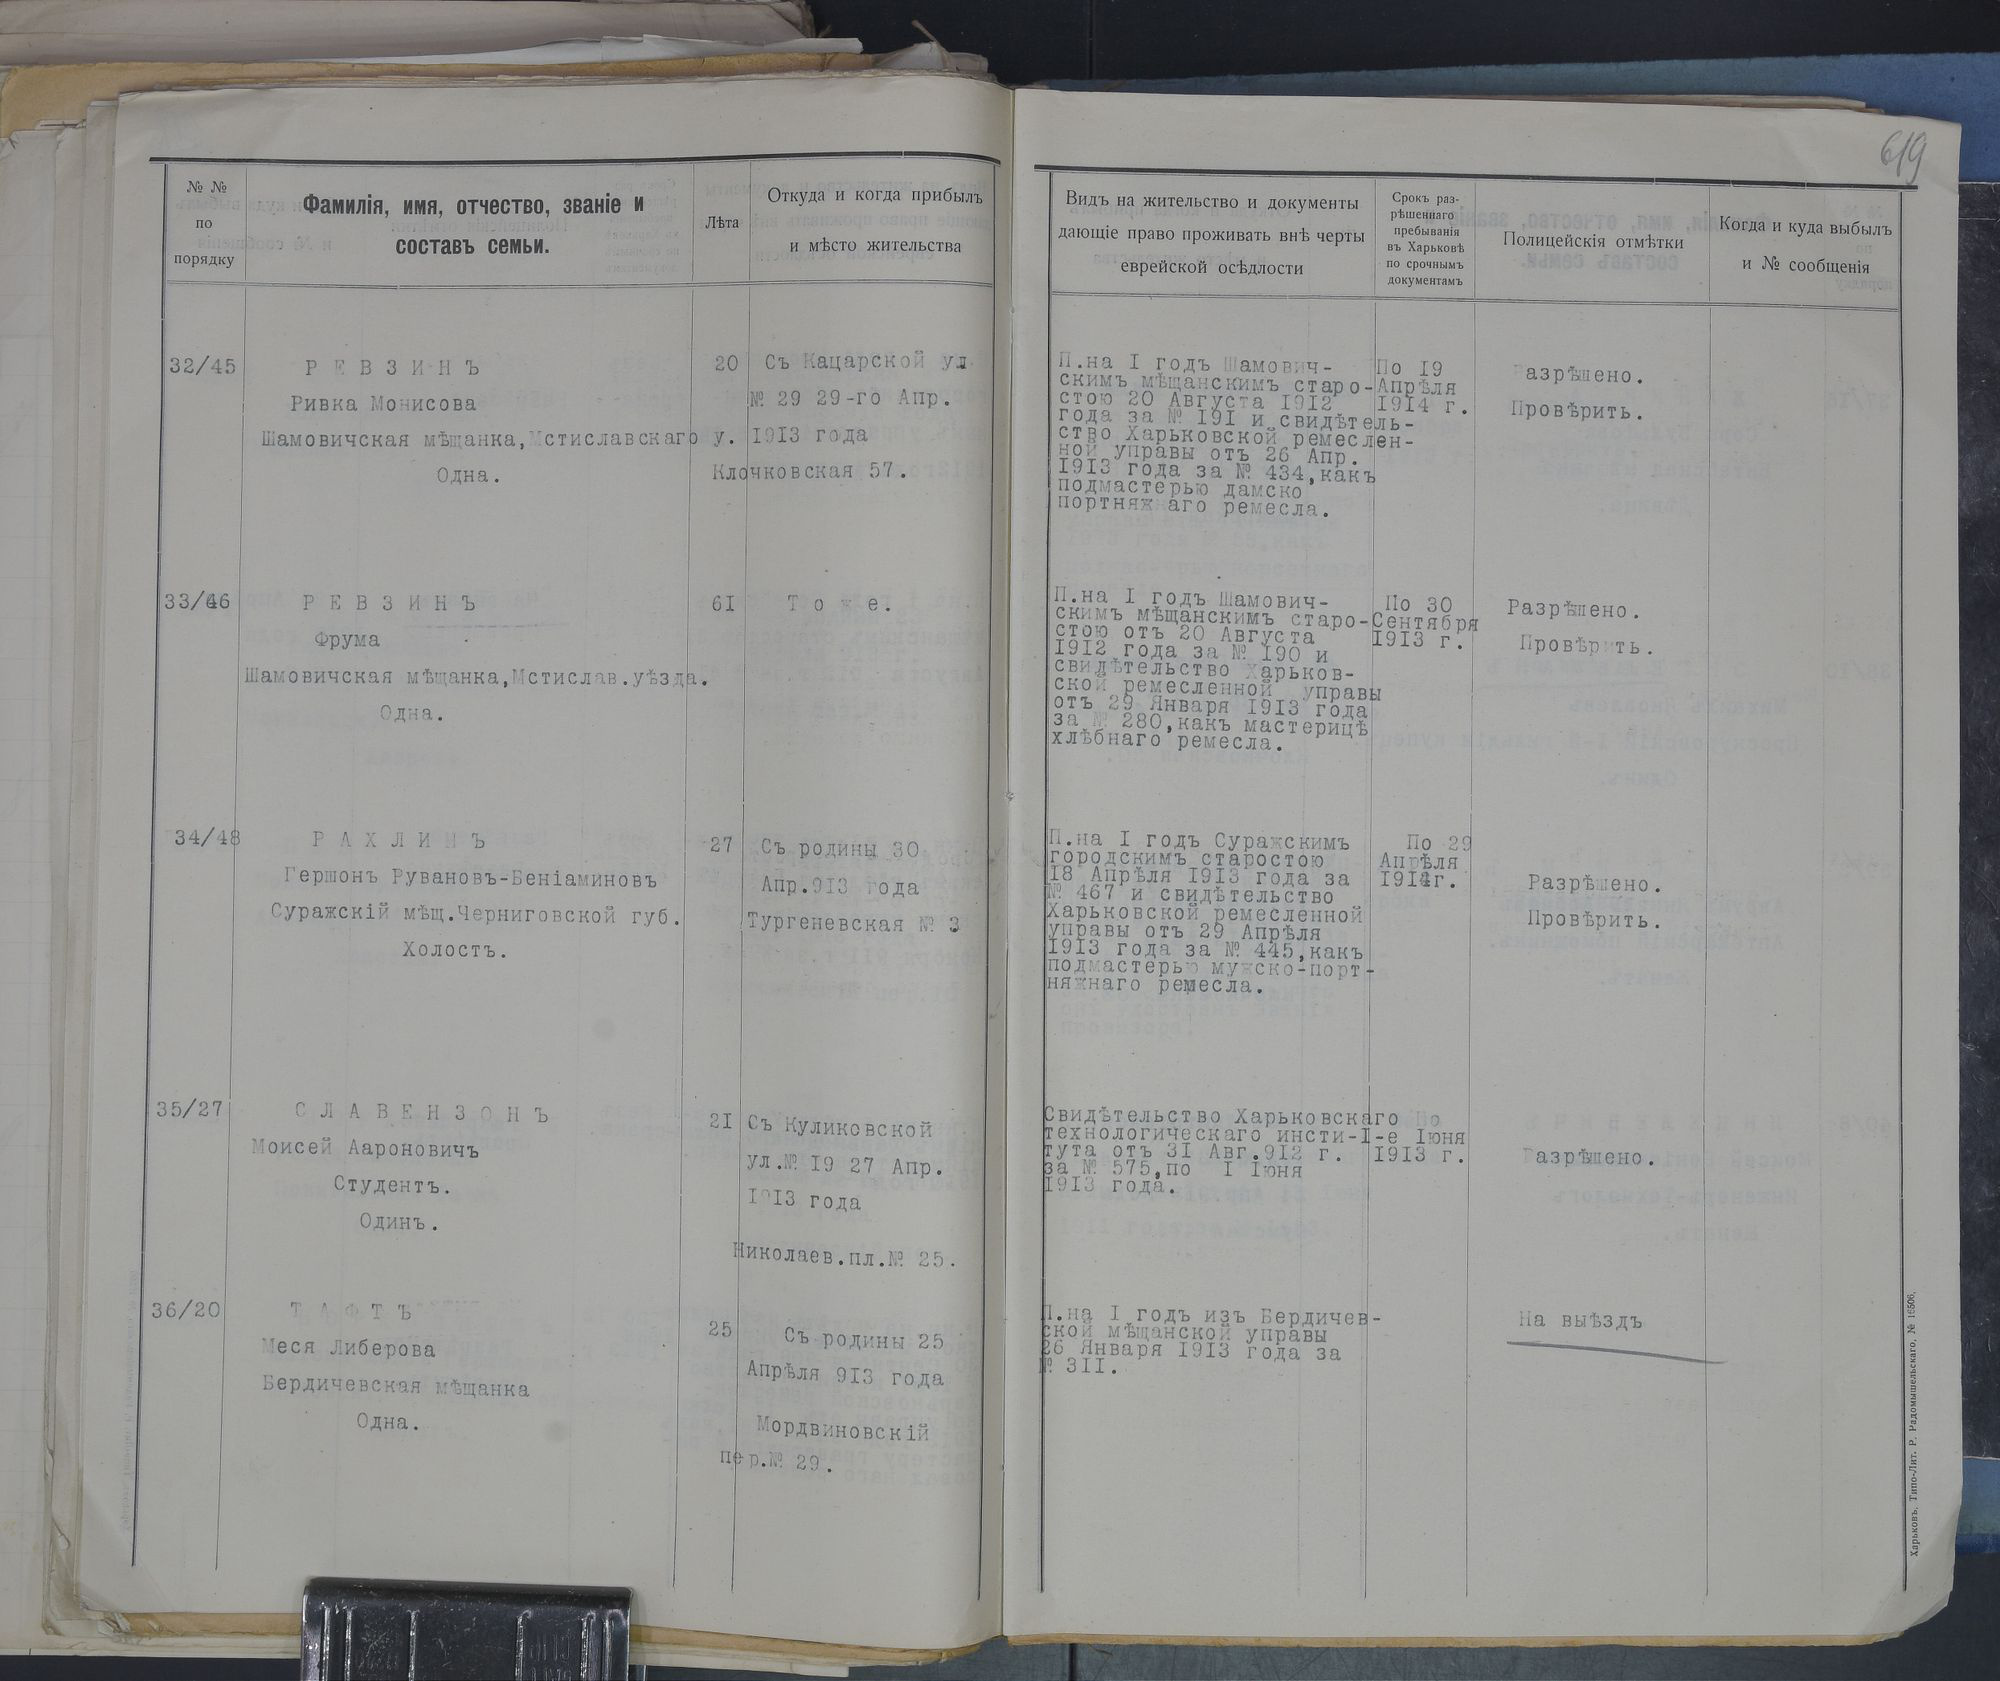 619
№ №
по
порядку
Фамилія, имя, отчество, званіе и
составъ семьи.
Лѣта
Откуда и когда прибылъ
и мѣсто жительства
Видъ на жительство и документы
дающіе право проживать внѣ черты
еврейской осѣдлости
Срокъ раз-
рѣшеннаго
пребыванія
въ Харьковѣ
по срочнымъ
документамъ
Полицейскія отмѣтки
Когда и куда выбылъ
и № сообщенія
32/45
РЕВЗИНЪ
Ривка Монисова
Шамовичская мѣщанка,Мстиславскаго у.
Одна.
20
Съ Кацарской ул
№ 29 29-го Апр.
1913 года
Клочковская 57.
П.на I годъ Шамович-
скимъ мѣщанскимъ старо-
стою 20 Августа 1912
года за № 191 и свидѣтель-
ство Харьковской ремеслен-
ной управы отъ 26 Апр.
1913 года за № 434,какъ
подмастерью дамско
портняж аго ремесла.
По 19
Апрѣля
1914 г.
азрѣшено.
Провѣрить.
33/46
РЕВЗИНЪ
Фрума
Шамовичская мѣщанка,Мстислав.уѣзда.
Одна.
6I
Тоже.
П.на I годъ Шамович-
скимъ мѣщанскимъ старо-
стою отъ 20 Августа
1912 года за № 190 и
свидѣтельство Харьков-
ской ремесленной управы
отъ 29 Января 1913 года
за № 280,какъ мастерицѣ
хлѣбнаго ремесла.
По 30
Сентября
1913 г.
Разрѣшено.
Провѣрить.
34/48
РАХЛИНЪ
Гершонъ Рувановъ-Беніаминовъ
Суражскій мѣщ.Черниговской губ.
Холостъ.
27
Съ родины 30
Апр.913 года
Тургеневская № 3
П.на I годъ Суражскимъ
городскимъ старостою
18 Апрѣля 1913 года за
№ 467 и свидѣтельство
Харьковской ремесленной
управы отъ 29 Апрѣля
1913 года за № 445,какъ
подмастерью мужско-порт-
няжнаго ремесла.
По 29
Апрѣля
1914г.
Разрѣшено.
Провѣрить.
35/27
СЛАВЕНЗОНЪ
Моисей Аароновичъ
Студентъ.
Одинъ.
2I
Съ Куликовской
ул.№ I9 27 Апр.
1913 года
Николаев.пл.№ 25.
Свидѣтельство Харьковскаго
технологическаго инсти-
тута отъ 3I Авг.912 г.
за № 575,по I Іюня
1913 года.
По
I-е Іюня
1913 г.
Разрѣшено.
36/20
ТАФТЪ
Меся Либерова
Бердичевская мѣщанка
Одна.
25
Съ родины 25
Апрѣля 913 года
Мордвиновскій
пер.№ 29.
П.на I годъ изъ Бердичев-
ской мѣщанской управы
26 Января 1913 года за
№ 3II.
На выѣздъ
Харьковъ, Типо-Лит. Р. Радомышельскаго, № 16506.